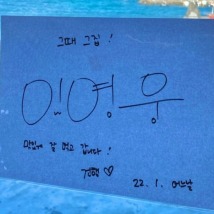 그때 그집!
임영웅
맛있게 잘 먹고 갑니다!
건행♡
22. 1. 어느날